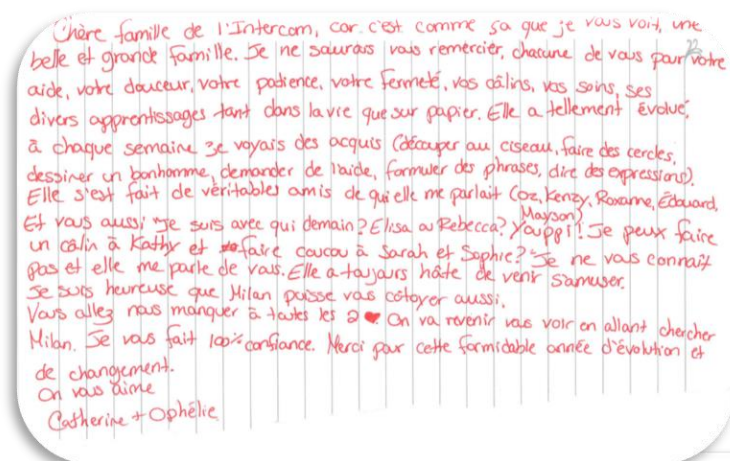 Chère famille de l'Intercom, car c'est comme sa que je vous voit, une
belle et grande famille. Je ne saurais vous remercier, chacune de vous pour votre
aide, votre douceur, votre patience, votre fermeté, vos câlins, vos soins, ses
divers apprentissages tant dans la vie que sur papier. Elle a tellement évolué,
à chaque semaine je voyais des acquis (découper au ciseau, faire des cercles,
dessiner un bonhomme, demander de l'aide, formuler des phrases, dire des expressions).
Elle s'est fait de véritables amis de qui elle me parlait (Oz, Kenzy, Roxanne, Édouard,
Mayson)
Et vous aussi "Je suis avec qui demain? Elisa ou Rebecca? Youppi! Je peux faire
un câlin à Kathy et faire coucou à Sarah et Sophie?" Je ne vous connait
pas et elle me parle de vous. Elle a toujours hâte de venir s'amuser.
Je suis heureuse que Milan puisse vous côtoyer aussi.
Vous allez nous manquer à toutes les 2 ♥ On va revenir vous voir en allant chercher
Milan. Je vous fait 100% confiance. Merci pour cette formidable année d'évolution et
de changement.
On vous aime
Catherine + Ophélie